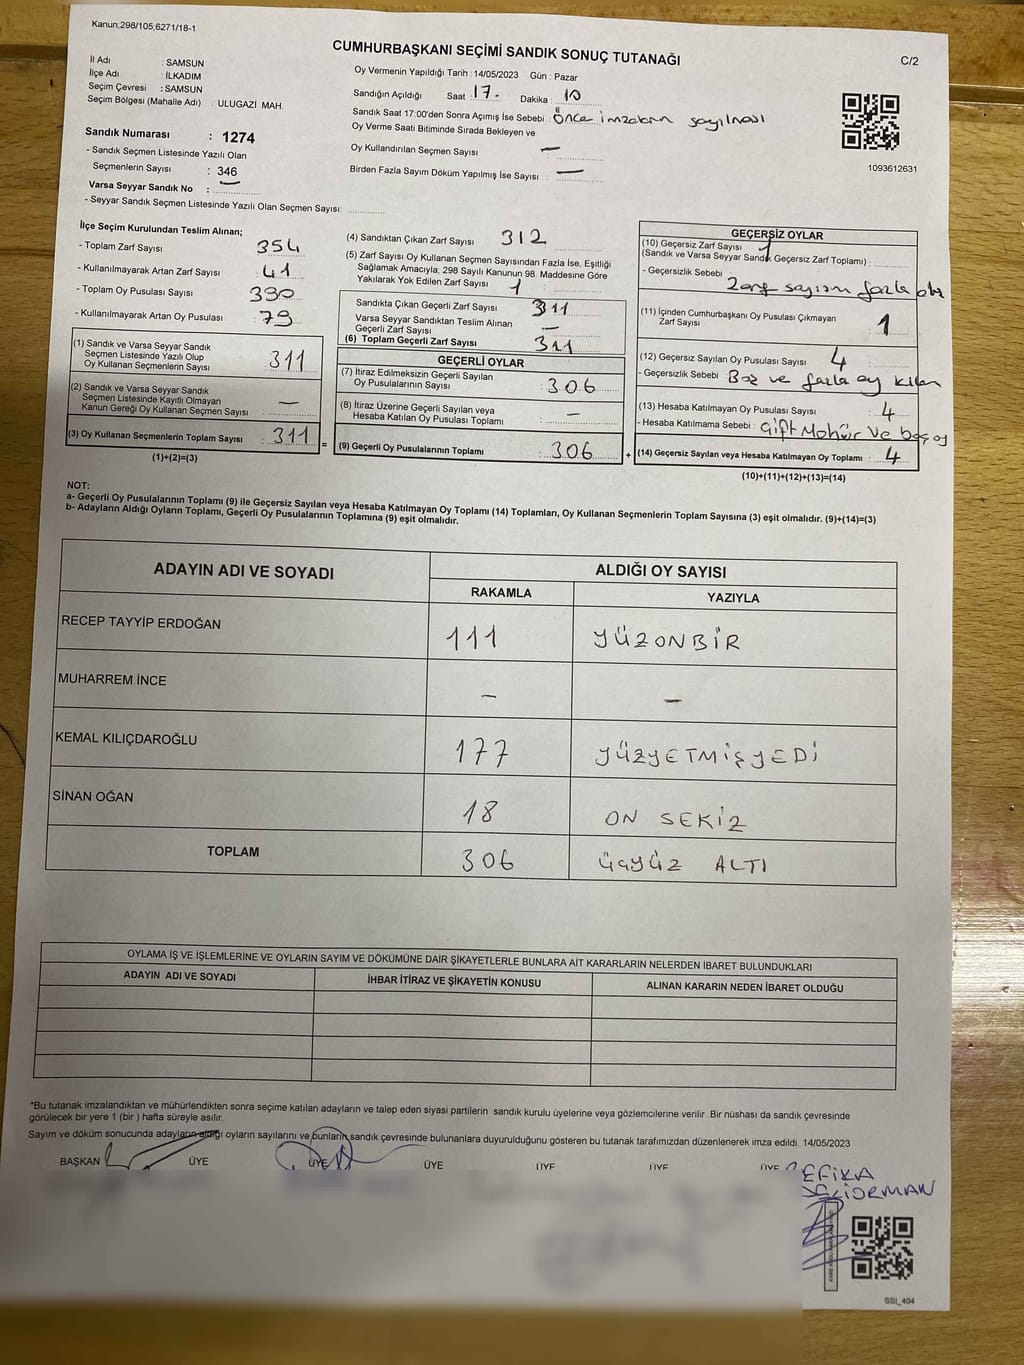 Kanun,298/105,6271/18-1
CUMHURBAŞKANI SEÇİMİ SANDIK SONUÇ TUTANAĞI
C/2
İl Adı : SAMSUN
İlçe Adı : İLKADIM
Seçim Çevresi : SAMSUN
Seçim Bölgesi (Mahalle Adı) : ULUGAZİ MAH.
Oy Vermenin Yapıldığı Tarih : 14/05/2023 Gün : Pazar
Sandığın Açıldığı Saat 17. Dakika : 10
Sandık Saat 17:00'den Sonra Açımış İse Sebebi : Önce imzaların sayılması
Oy Verme Saati Bitiminde Sırada Bekleyen ve
Oy Kullandırılan Seçmen Sayısı : —
Birden Fazla Sayım Döküm Yapılmış İse Sayısı : —
1093612631
Sandık Numarası : 1274
- Sandık Seçmen Listesinde Yazılı Olan
Seçmenlerin Sayısı : 346
Varsa Seyyar Sandık No : —
- Seyyar Sandık Seçmen Listesinde Yazılı Olan Seçmen Sayısı:
İlçe Seçim Kurulundan Teslim Alınan;
- Toplam Zarf Sayısı 354
- Kullanılmayarak Artan Zarf Sayısı : 41
- Toplam Oy Pusulası Sayısı 390
- Kullanılmayarak Artan Oy Pusulası : 79
(1) Sandık ve Varsa Seyyar Sandık
Seçmen Listesinde Yazılı Olup
Oy Kullanan Seçmenlerin Sayısı : 311
(2) Sandık ve Varsa Seyyar Sandık
Seçmen Listesinde Kayıtlı Olmayan
Kanun Gereği Oy Kullanan Seçmen Sayısı : —
(3) Oy Kullanan Seçmenlerin Toplam Sayısı : 311 =
(1)+(2)=(3)
(4) Sandıktan Çıkan Zarf Sayısı 312
(5) Zarf Sayısı Oy Kullanan Seçmen Sayısından Fazla İse, Eşitliği
Sağlamak Amacıyla, 298 Sayılı Kanunun 98. Maddesine Göre
Yakılarak Yok Edilen Zarf Sayısı 1
Sandıkta Çıkan Geçerli Zarf Sayısı : 311
Varsa Seyyar Sandıktan Teslim Alınan
Geçerli Zarf Sayısı —
(6) Toplam Geçerli Zarf Sayısı 311
GEÇERLİ OYLAR
(7) İtiraz Edilmeksizin Geçerli Sayılan
Oy Pusulalarının Sayısı : 306
(8) İtiraz Üzerine Geçerli Sayılan veya
Hesaba Katılan Oy Pusulası Toplamı : —
(9) Geçerli Oy Pusulalarının Toplamı : 306 +
GEÇERSİZ OYLAR
(10) Geçersiz Zarf Sayısı 1
(Sandık ve Varsa Seyyar Sandık Geçersiz Zarf Toplamı) :
- Geçersizlik Sebebi : Zarf sayısın fazla
(11) İçinden Cumhurbaşkanı Oy Pusulası Çıkmayan
Zarf Sayısı : 1
(12) Geçersiz Sayılan Oy Pusulası Sayısı : 4
- Geçersizlik Sebebi : Boz ve fazla oy kılan
(13) Hesaba Katılmayan Oy Pusulası Sayısı : 4
- Hesaba Katılmama Sebebi : Çift Mohür ve boş oy
(14) Geçersiz Sayılan veya Hesaba Katılmayan Oy Toplamı : 4
(10)+(11)+(12)+(13)=(14)
NOT:
a- Geçerli Oy Pusulalarının Toplamı (9) ile Geçersiz Sayılan veya Hesaba Katılmayan Oy Toplamı (14) Toplamları, Oy Kullanan Seçmenlerin Toplam Sayısına (3) eşit olmalıdır. (9)+(14)=(3)
b- Adayların Aldığı Oyların Toplamı, Geçerli Oy Pusulalarının Toplamına (9) eşit olmalıdır.
ADAYIN ADI VE SOYADI
ALDIĞI OY SAYISI
RAKAMLA
YAZIYLA
RECEP TAYYİP ERDOĞAN 111 YÜZONBİR
MUHARREM İNCE — —
KEMAL KILIÇDAROĞLU 177 YÜZYETMİŞYEDİ
SİNAN OĞAN 18 ON SEKİZ
TOPLAM 306 ÜÇYÜZ ALTI
OYLAMA İŞ VE İŞLEMLERİNE VE OYLARIN SAYIM VE DÖKÜMÜNE DAİR ŞİKAYETLERLE BUNLARA AİT KARARLARIN NELERDEN İBARET BULUNDUKLARI
ADAYIN ADI VE SOYADI
İHBAR İTİRAZ VE ŞİKAYETİN KONUSU
ALINAN KARARIN NEDEN İBARET OLDUĞU
*Bu tutanak imzalandıktan ve mühürlendikten sonra seçime katılan adayların ve talep eden siyasi partilerin sandık kurulu üyelerine veya gözlemcilerine verilir .Bir nüshası da sandık çevresinde
görülecek bir yere 1 (bir ) hafta süreyle asılır.
Sayım ve döküm sonucunda adayların aldığı oyların sayılarını ve bunların sandık çevresinde bulunanlara duyurulduğunu gösteren bu tutanak tarafımızdan düzenlenerek imza edildi. 14/05/2023
BAŞKAN ÜYE ÜYE ÜYE ÜYE ÜYE ÜYE
REFİKA
SSI_404